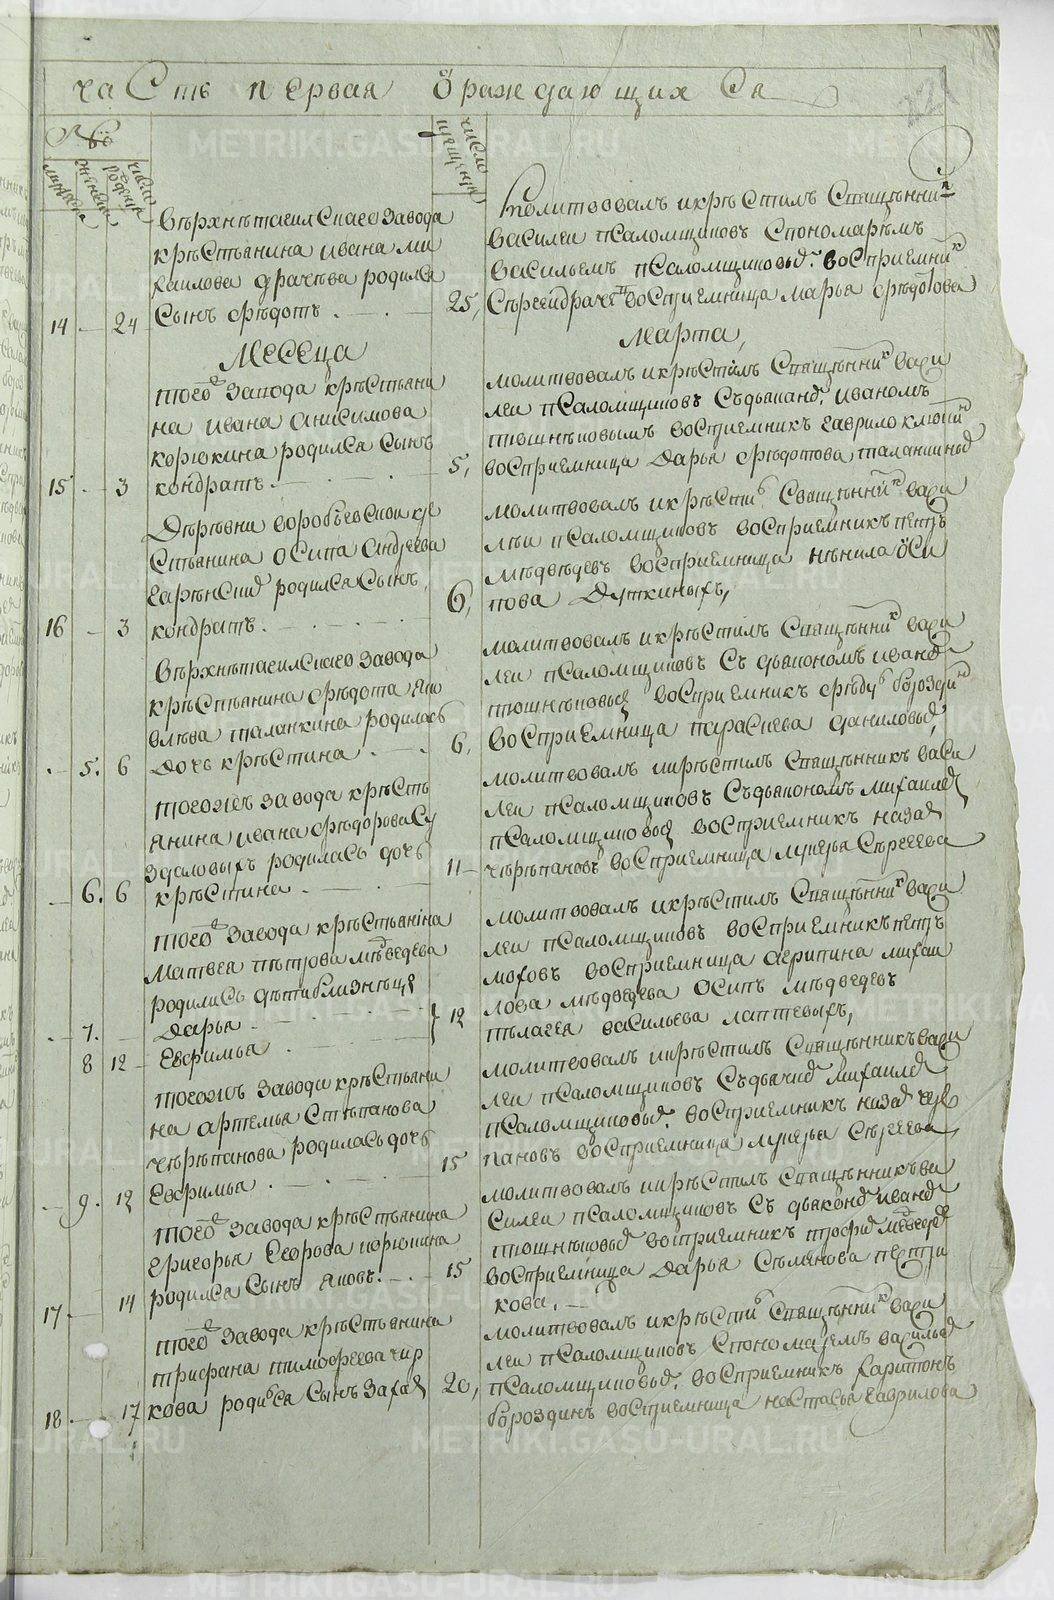 часть первая ѡ раждающих ся
221
№
мужеска
женска
число рождения
число крещения
Верхнетагилскаго завода
крестьянина ивана ми
хаилова драчева родился
14 24 сынъ федотъ
Молитвовалъ и крестилъ священник
василеи псаломщиковъ с пономаремъ
васильемъ псаломщиковы. восприемник
25, сергеи драче восприемница марья федотова
Месеца
Марта,
тогож завода крестьяни
на ивана анисимова
корюкина родился сынъ
15 3 кондратъ
молитвовалъ и крестилъ священник васи
леи псаломщиковъ с дьяконо. иваномъ
восприемникъ гаврило
5, восприемница дарья федотова
деревни воробьевскои кре
стьянина осипа андреева
родился сынъ,
16 3 кондратъ.
молитвовалъ и крести священник васи
леи псаломщиковъ восприемникъ петръ
медведевъ восприемница ненила оси
6, пова дуткиныхъ,
Верхнетагилскаго завода
крестьянина федота яко
влева таланкина родилась
5. 6 дочь крестина
молитвовалъ и крестилъ священник васи
леи псаломщиковъ с дьякономъ ивано
восприемник бороздин
6, восприемница параскева данилова,
тогожъ завода кресть
янина ивана федорова су
здаловыхъ родилась дочь
6. 6 крестина
молитвовалъ и крестилъ священникъ васи
леи псаломщиковъ с дьякономъ михаило
псаломщиково восприемникъ назар
11 черепановъ восприемница лукерья сергеева
тогож завода крестьянина
матвея петрова медведева
родились дети близнецы
7. дарья
8 12 евфимья
молитвовалъ и крестилъ священник васи
леи псаломщиковъ восприемникъ петръ
моховъ восприемница агрипина михаи
лова медведева осипъ медведевъ
12 пелагея васильева лаптевыхъ,
тогожъ завода крестьяни
на артемья степанова
черепанова родилась дочь
9. 12 евфимья
молитвовалъ и крестилъ священникъ васи
леи псаломщиковъ с дьячко михаило
псаломщиковы. восприемникъ назар чере
15 пановъ восприемница лукерья сергеева
тогож завода крестьянина
григорья егорова корюкина
17 14 родился сынъ яковъ.
молитвовалъ и крестилъ священникъ ва
силеи псаломщиковъ с дьяконо ивано
восприемникъ трофи медведев
15 восприемница дарья семенова пестри
кова.
тогож завода крестьянина
трифана тимофеева чир
18 17 кова родися сынъ захар
молитвовалъ и крести священник васи
леи псаломщиковъ с пономаремъ василье
20, псаломщиковы. восприемник харитонъ
бороздинъ восприемница настасья гаврилова
METRIKI.GASO-URAL.RU